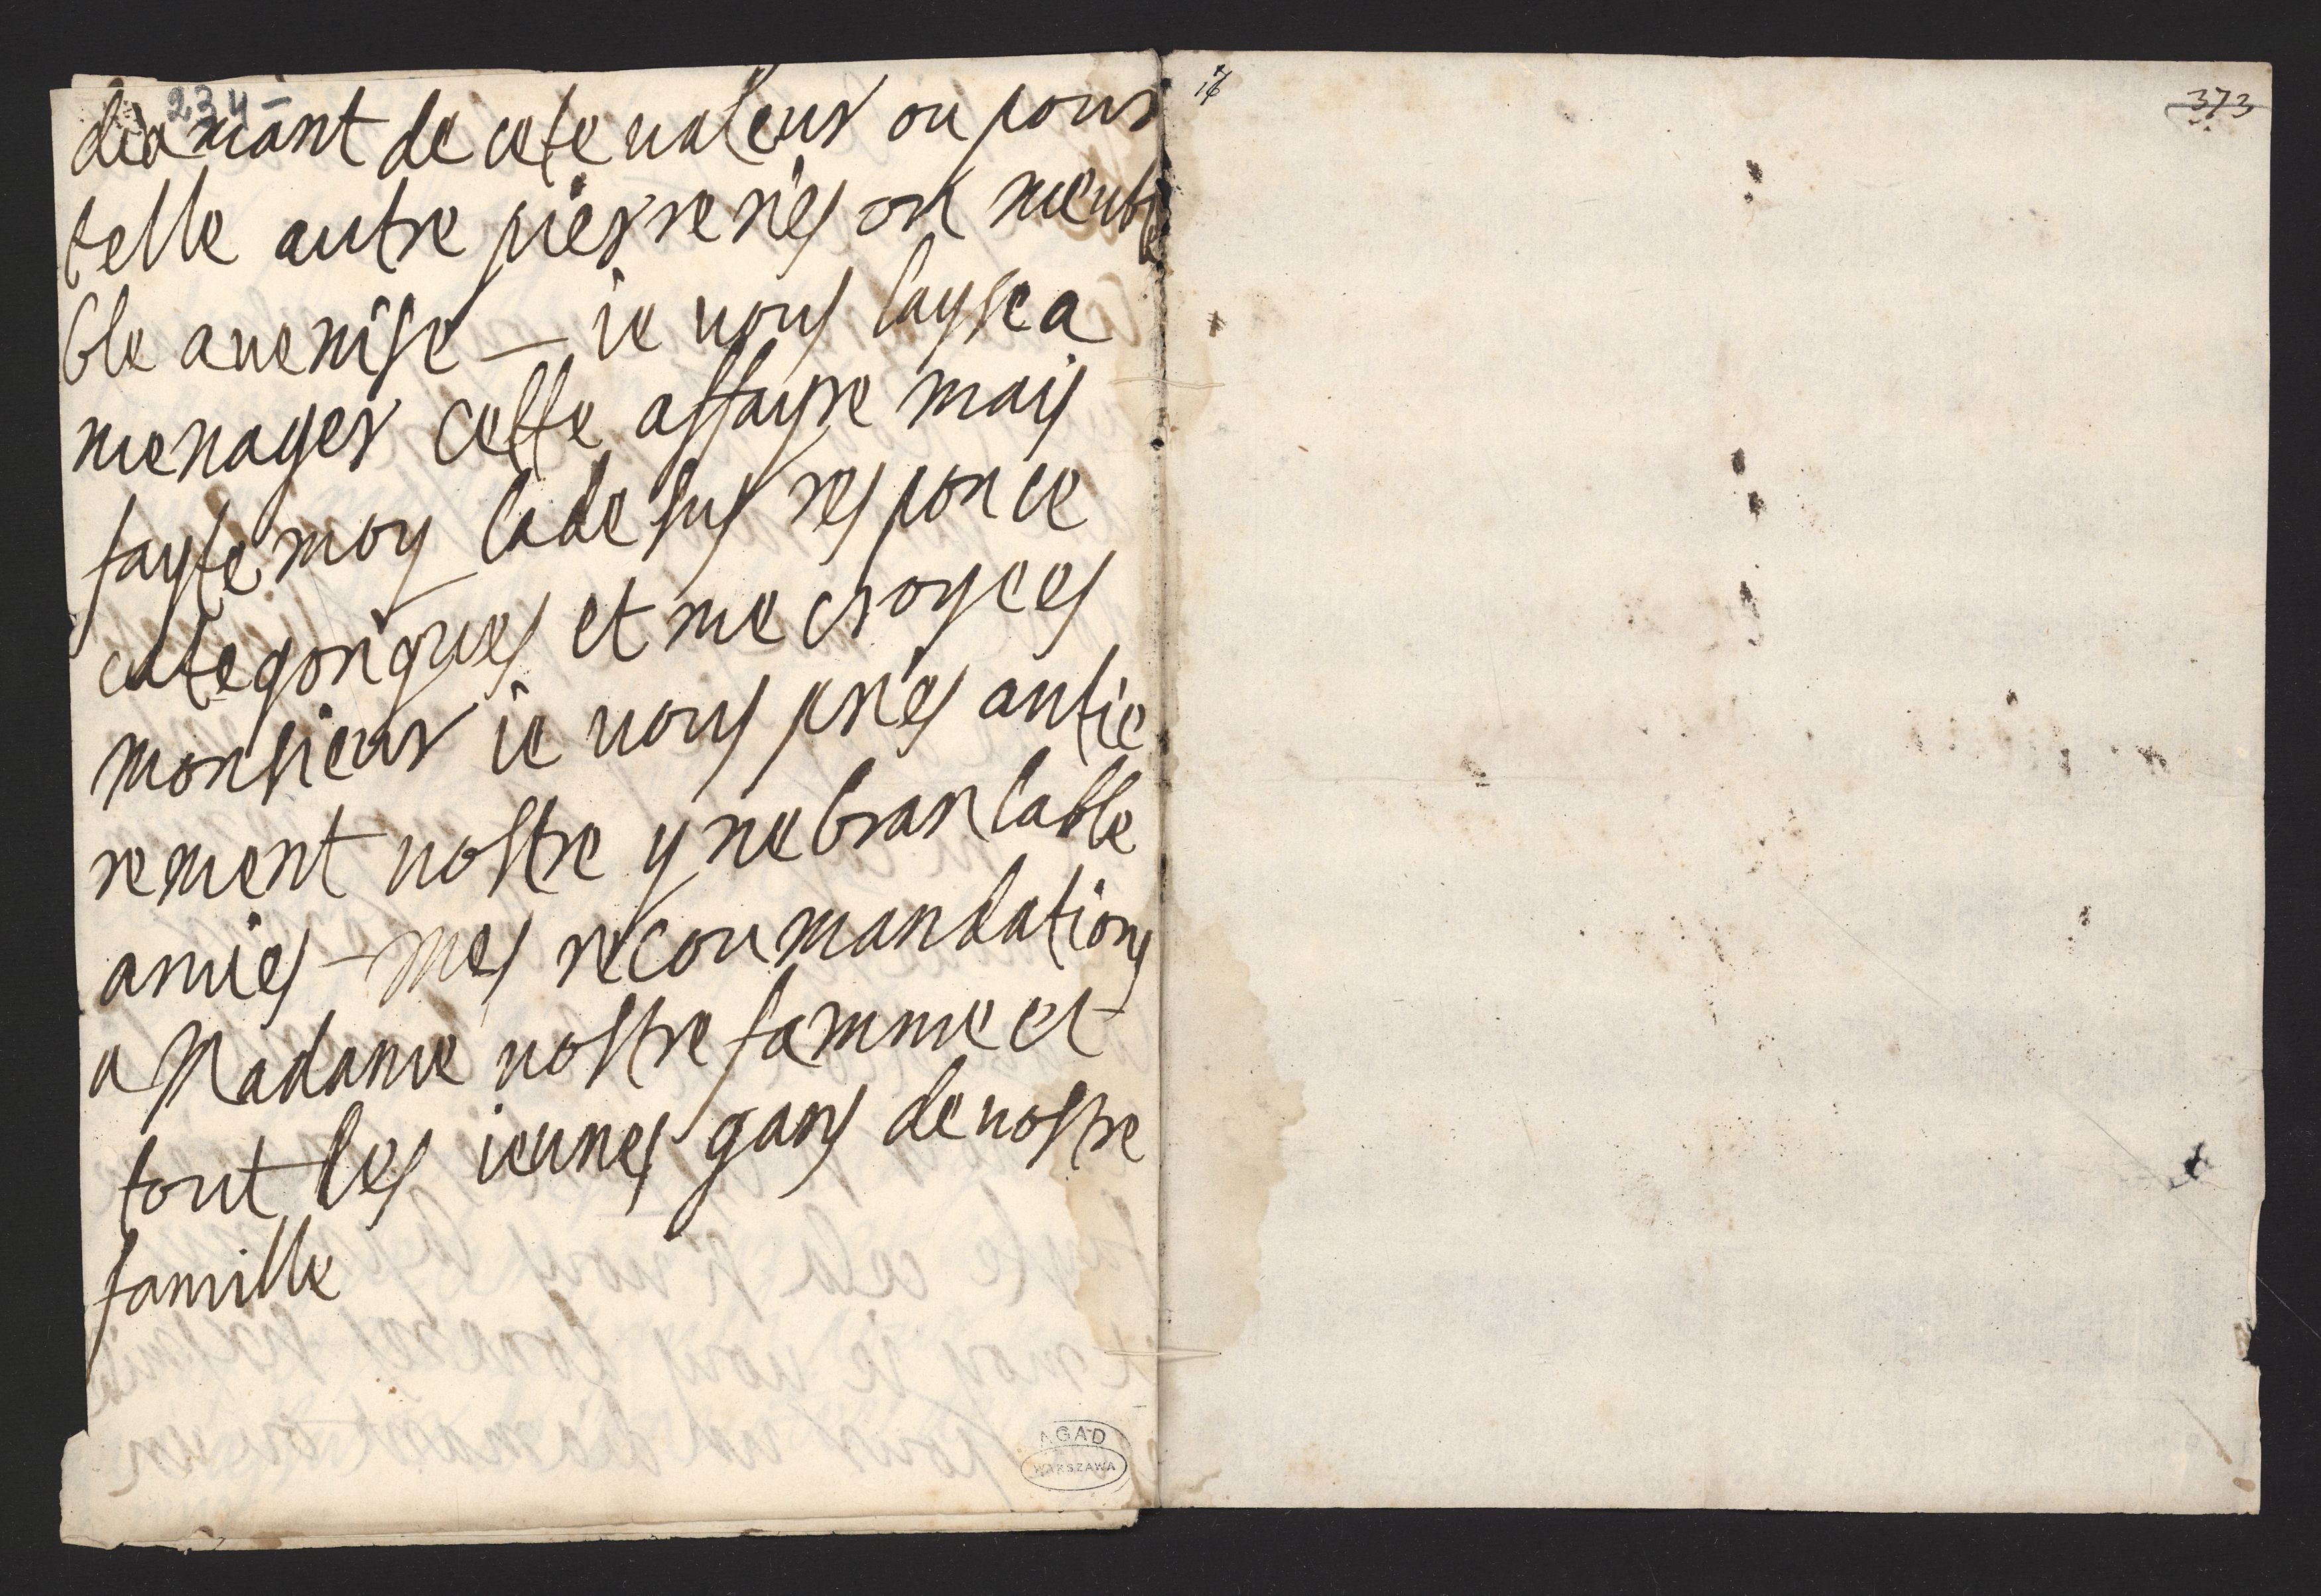 234-
diamant de cete ualeur ou pour
telle autre pierreries ou meub
ble auenise — ie uous laysse a
menager cette affayre mais
fayte moy ladesus responce
categoriques et me croyees
monsieur ie uous pries antie
rement uostre ynebranlable
amies - Mes recoumandations
a Madame uostre famme et
tout les ieunes gans de uostre
famille
AGAD
WARSZAWA
373